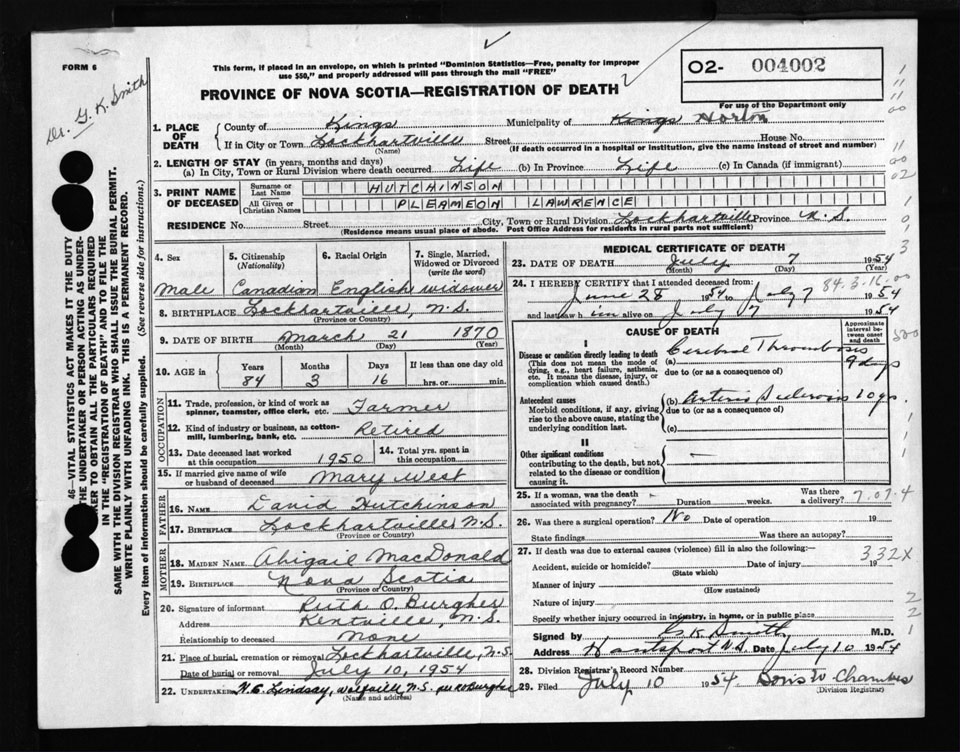 FORM 6
This form, if placed in an envelope, on which is printed "Dominion Statistics—Free, penalty for improper
use $50," and properly addressed will pass through the mail "FREE"
O2- 004002
PROVINCE OF NOVA SCOTIA—REGISTRATION OF DEATH
For use of the Department only
Dr. G. K. Smith
1. PLACE OF DEATH
County of Kings Municipality of Kings Horton
If in City or Town Lockhartville Street House No.
(Name) (If death occurred in a hospital or institution, give the name instead of street and number)
2. LENGTH OF STAY (in years, months and days)
(a) In City, Town or Rural Division where death occurred Life (b) In Province Life (c) In Canada (if immigrant)
3. PRINT NAME OF DECEASED
Surname or Last Name HUTCHINSON
All Given or Christian Names PLEAMEON LAWRENCE
RESIDENCE No. Street City, Town or Rural Division Lockhartville Province N.S.
(Residence means usual place of abode. Post Office Address for residents in rural parts not sufficient)
4. Sex
Male
5. Citizenship (Nationality)
Canadian
6. Racial Origin
English
7. Single, Married, Widowed or Divorced (write the word)
widower
8. BIRTHPLACE Lockhartville, N.S.
(Province or Country)
9. DATE OF BIRTH March 21 1870
(Month) (Day) (Year)
10. AGE in
Years Months Days If less than one day old
84 3 16 hrs. or min.
OCCUPATION
11. Trade, profession, or kind of work as spinner, teamster, office clerk, etc. Farmer
12. Kind of industry or business, as cotton-mill, lumbering, bank, etc. Retired
13. Date deceased last worked at this occupation 1950
14. Total yrs. spent in this occupation
15. If married give name of wife or husband of deceased Mary West
FATHER
16. NAME David Hutchinson
17. BIRTHPLACE Lockhartville N.S.
(Province or Country)
MOTHER
18. MAIDEN NAME Abigail MacDonald
19. BIRTHPLACE Nova Scotia
(Province or Country)
20. Signature of informant Ruth O. Burgher
Address Kentville, N.S.
Relationship to deceased None
21. Place of burial, cremation or removal Lockhartville, N.S.
Date of burial or removal July 10, 1954
22. UNDERTAKER W.C. Lindsay, Wolfville N.S.
(Name and address)
MEDICAL CERTIFICATE OF DEATH
23. DATE OF DEATH July 7 1954
(Month) (Day) (Year)
24. I HEREBY CERTIFY that I attended deceased from:
June 28 1954 to July 7 1954
84.3-16-
and last saw him alive on July 7 1954
CAUSE OF DEATH
Approximate interval between onset and death
I
Disease or condition directly leading to death
(This does not mean the mode of dying, e.g., heart failure, asthenia, etc. It means the disease, injury, or complication which caused death.)
(a) Cerebral Thrombosis 9 days
due to (or as a consequence of)
Antecedent causes
Morbid conditions, if any, giving rise to the above cause, stating the underlying condition last.
(b) Arterio Sclerosis 10 yrs.
due to (or as a consequence of)
(c)
II
Other significant conditions
contributing to the death, but not related to the disease or condition causing it.
25. If a woman, was the death associated with pregnancy? Duration weeks. Was there a delivery?
7.07.4
26. Was there a surgical operation? No Date of operation 19
State findings Was there an autopsy?
27. If death was due to external causes (violence) fill in also the following:—
332X
Accident, suicide or homicide? Date of injury 19
(State which)
Manner of injury
(How sustained)
Nature of injury
Specify whether injury occurred in industry, in home, or in public place
Signed by G K Smith M.D.
Address Hantsport N.S. Date July 10 1954
28. Division Registrar's Record Number
29. Filed July 10 1954 Doris W Chambers
(Division Registrar)
46—VITAL STATISTICS ACT MAKES IT THE DUTY
THE UNDERTAKER OR PERSON ACTING AS UNDER-
KER TO OBTAIN ALL THE PARTICULARS REQUIRED
IN THE "REGISTRATION OF DEATH" AND TO FILE THE
SAME WITH THE DIVISION REGISTRAR WHO SHALL ISSUE THE BURIAL PERMIT.
WRITE PLAINLY WITH UNFADING INK. THIS IS A PERMANENT RECORD.
Every item of information should be carefully supplied. (See reverse side for instructions.)